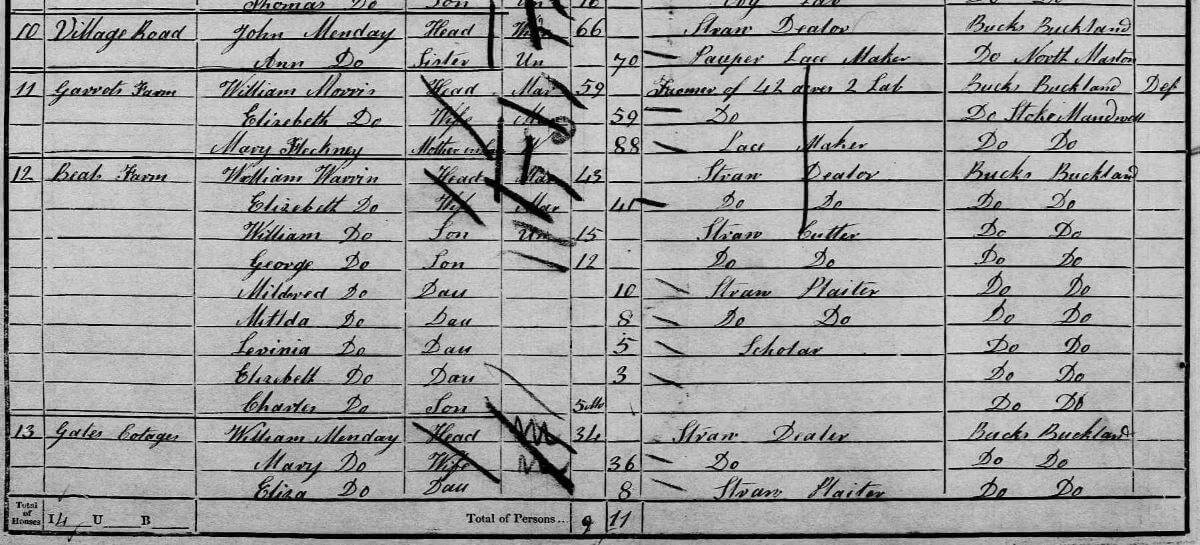 Thomas Do Son Un 16 Lab Do Do
10 Village Road John Menday Head 66 Straw Dealor Bucks Buckland
Ann Do Sister Un 70 Pauper Lace Maker Do North Maston
11 Garrots Farm William Morris Head Mar 59 Farmer of 42 acres 2 Lab Bucks Buckland Def
Elizebeth Do Wife 59 Do Do Stoke Mandwell
Mary Fleckney Mother in law W 88 Lace Maker Do Do
12 Beals Farm William Warrin Head Mar 43 Straw Dealor Bucks Buckland
Elizebeth Do Wife Mar 41 Do Do Do Do
William Do Son Un 15 Straw Cutter Do Do
George Do Son 12 Do Do Do Do
Mildred Do Dau 10 Straw Plaiter Do Do
Mitlda Do Dau 8 Do Do Do Do
Levinia Do Dau 5 Scholar Do Do
Elizebeth Do Dau 3 Do Do
Charles Do Son 5 Mo Do Do
13 Gates Cotages William Menday Head M 34 Straw Dealer Bucks Buckland
Mary Do Wife M 36 Do Do Do
Eliza Do Dau 8 Straw Plaiter Do Do
Total of Houses 14 U B Total of Persons... 9 11